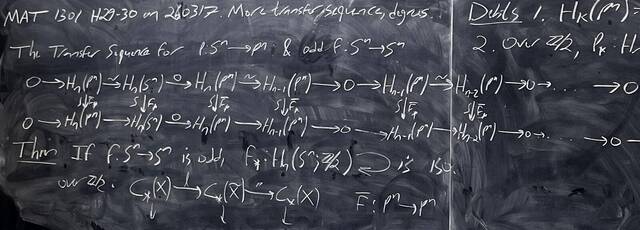 MAT 1301 H29-30 on 260317. More transfer sequence, degrees.
The Transfer Sequence for p: Sⁿ→Pⁿ & odd f: Sⁿ→Sⁿ
0→Hₙ(Pⁿ) ~→ Hₙ(Sⁿ) 0→ Hₙ(Pⁿ) ~→ Hₙ₋₁(Pⁿ) → 0 → Hₙ₋₁(Pⁿ) ~→ Hₙ₋₂(Pⁿ) → 0→ ... → 0
0→Hₙ(Pⁿ) → Hₙ(Sⁿ) 0→ Hₙ(Pⁿ) → Hₙ₋₁(Pⁿ) → 0 → Hₙ₋₁(Pⁿ) → Hₙ₋₂(Pⁿ) → 0→ ... → 0
Thm If f: Sⁿ→Sⁿ is odd, f_*: Hₙ(Sⁿ; Z/2) is iso.
over Z/2. C_*(X) → C_*(X̃) → C_*(X) f̄: Pⁿ→Pⁿ
Debts 1. Hₖ(Pⁿ)
2. Over Z/2,